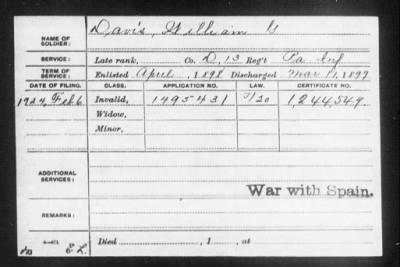 NAME OF SOLDIER: Davis, William G
SERVICE: Late rank, Co. D, 13 Reg't Pa Inf
TERM OF SERVICE: Enlisted April , 1898 Discharged Mar 11, 1899
DATE OF FILING. CLASS. APPLICATION NO. LAW. CERTIFICATE NO.
1924, Feb 6 Invalid, 1495431 1244549.
Widow,
Minor,
ADDITIONAL SERVICES:
War with Spain.
REMARKS:
Died , 1 , at